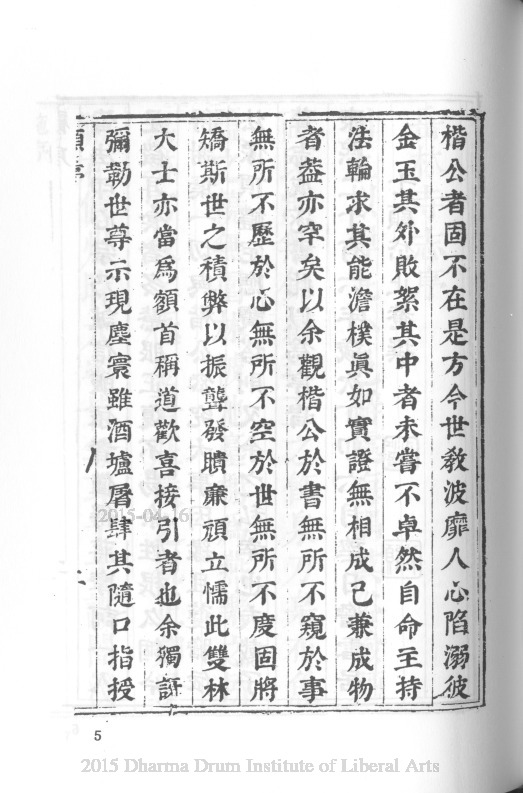 楷公者固不在是方今世教波靡人心陷溺彼
金玉其外敗絮其中者未嘗不卓然自命主持
法輪求其能澹樸眞如實證無相成己兼成物
者葢亦罕矣以余觀楷公於書無所不窺於事
無所不歷於心無所不空於世無所不度固將
矯斯世之積弊以振聾發聵廉頑立懦此雙林
大士亦當爲額首稱道歡喜接引者也余獨訝
彌勒世尊示現塵寰雖酒壚屠肆其隨口指授
2015-04-16
5
2015 Dharma Drum Institute of Liberal Arts